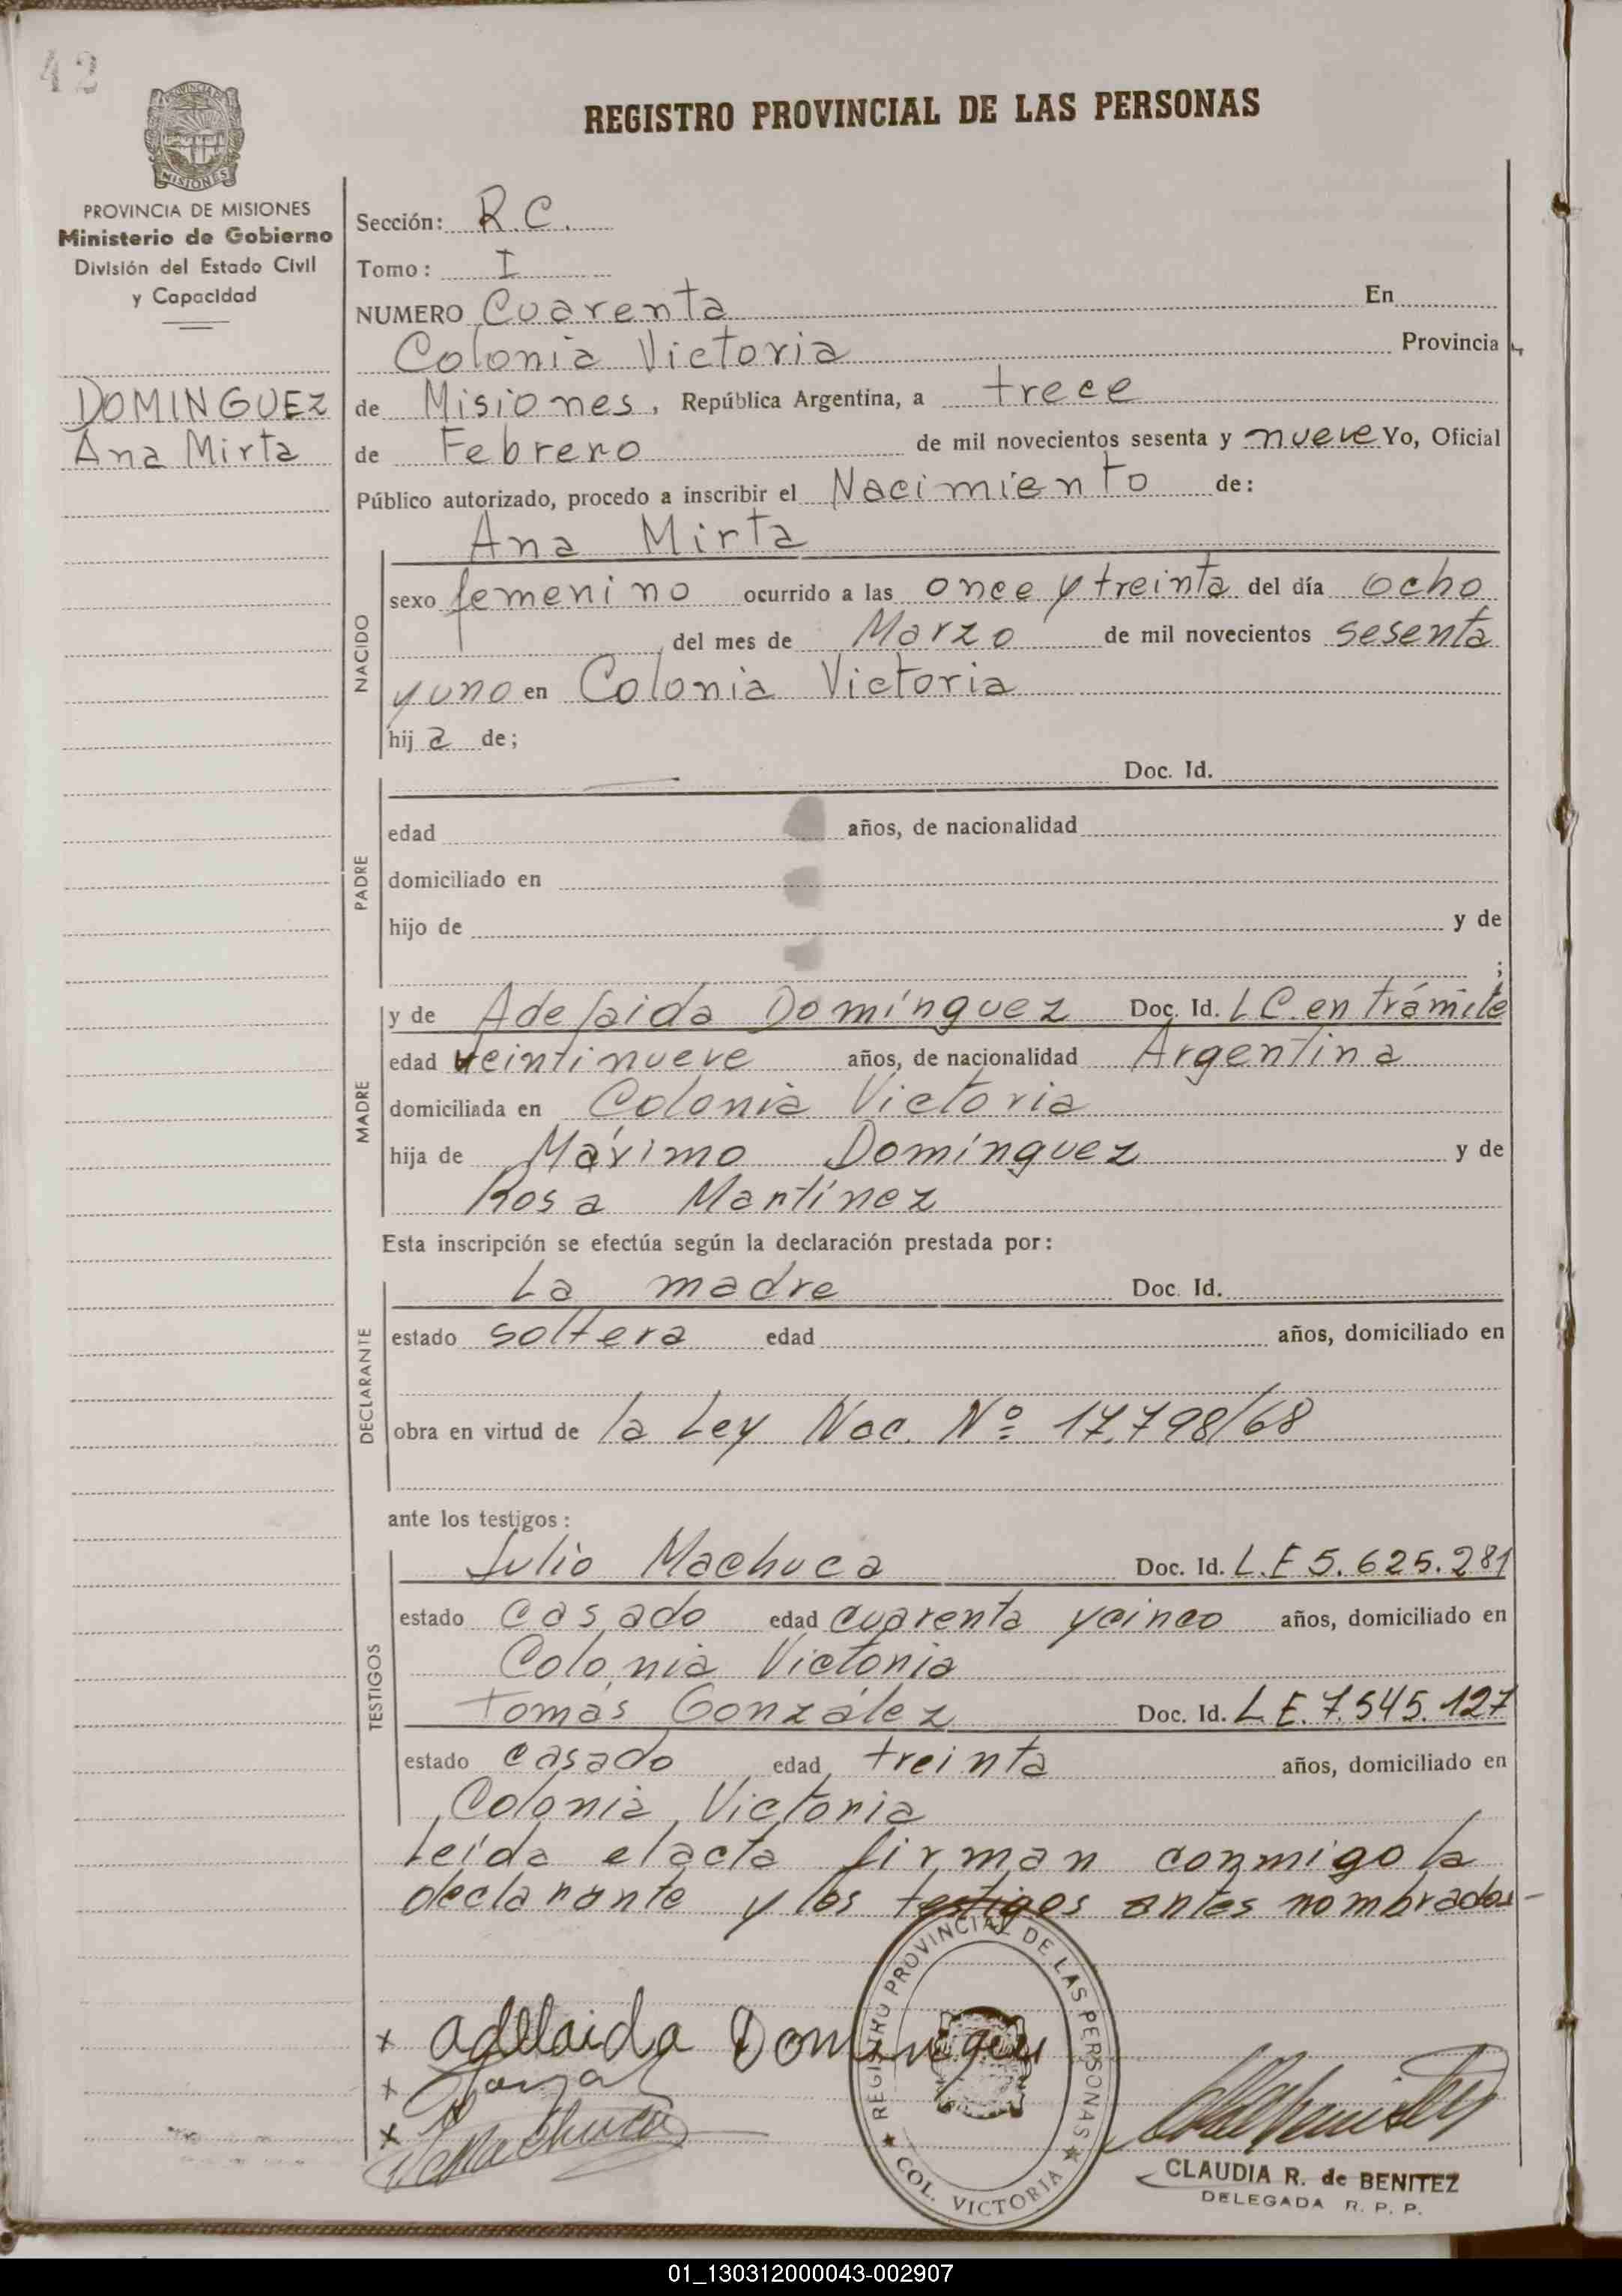 42
REGISTRO PROVINCIAL DE LAS PERSONAS
PROVINCIA DE MISIONES
MISIONES
PROVINCIA DE MISIONES
Ministerio de Gobierno
División del Estado Civil
y Capacidad
DOMINGUEZ
Ana Mirta
Sección: R.C.
Tomo: I
NUMERO Cuarenta En
Colonia Victoria Provincia
de Misiones, República Argentina, a trece
de Febrero de mil novecientos sesenta y nueve Yo, Oficial
Público autorizado, procedo a inscribir el Nacimiento de:
Ana Mirta
NACIDO
sexo femenino ocurrido a las once y treinta del día ocho
del mes de Marzo de mil novecientos sesenta
y uno en Colonia Victoria
hij a de;
PADRE
Doc. Id.
edad años, de nacionalidad
domiciliado en
hijo de y de
;
MADRE
y de Adelaida Domínguez Doc. Id. L C. en trámite
edad veintinueve años, de nacionalidad Argentina
domiciliada en Colonia Victoria
hija de Máximo Domínguez y de
Rosa Martínez
Esta inscripción se efectúa según la declaración prestada por:
DECLARANTE
La madre Doc. Id.
estado soltera edad años, domiciliado en
obra en virtud de la Ley Nac. Nº 17.798/68
ante los testigos:
TESTIGOS
Julio Machuca Doc. Id. L.E 5.625.281
estado casado edad cuarenta y cinco años, domiciliado en
Colonia Victoria
Tomás González Doc. Id. L E. 7.545.127
estado casado edad treinta años, domiciliado en
Colonia Victoria
Leída el acta firman conmigo la
declarante y los testigos antes nombrados-
x adelaida Dominguez
x
x Machuca
REGISTRO PROVINCIAL DE LAS PERSONAS
★ COL. VICTORIA ★
CLAUDIA R. de BENITEZ
DELEGADA R. P. P.
01_130312000043-002907